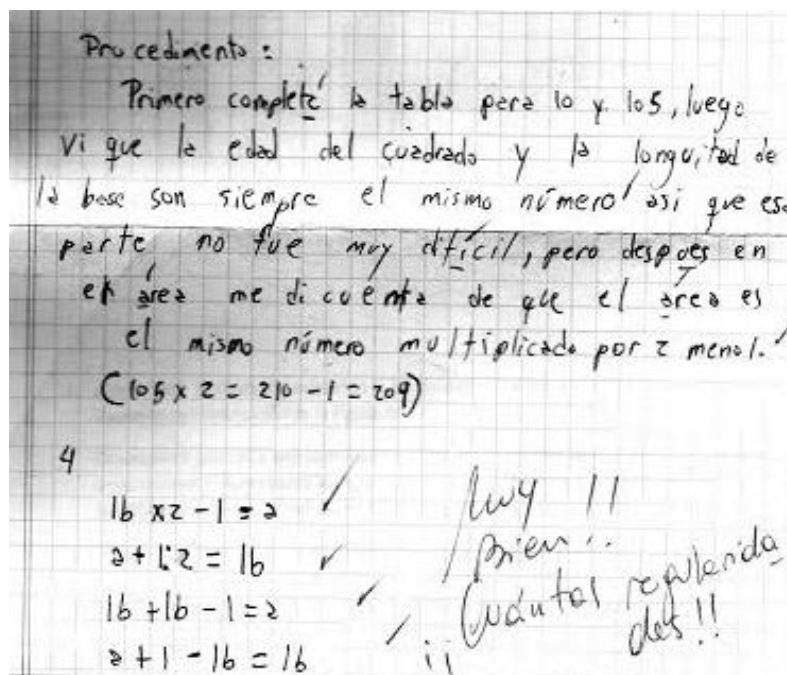 Procedimento:
Primero completé la tabla para 10 y 105, luego
vi que la edad del cuadrado y la longuitad de
la base son siempre el mismo número asi que esa
parte no fue muy difícil, pero después en
el área me di cuenta de que el área es
el mismo número multiplicado por 2 meno 1.
(105 x 2 = 210 - 1 = 209)
4
lb x2 - 1 = a
a + 1:2 = lb
lb + lb - 1 = a
a + 1 - lb = lb
Muy !!
Bien!!
Cuántas regularida
des!!